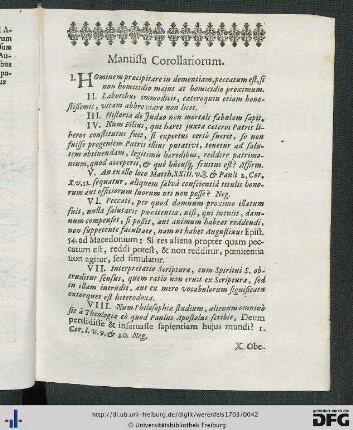 Mantissa Corollariorum.
I. HOminem præcipitare in dementiam, peccatum est, si
non homicidio majus at homicidio proximum.
II. Laboribus immodicis, cæteroquin etiam hone-
stissimis, vitam abbreviare non licet.
III. Historia de Judæo non mortali fabulam sapit.
IV. Num Filius, qui hæres juxta cæteros Patris li-
beros constitutus fuit, si expertus certò fuerit, se non
fuisse progeniem Patris illius putativi, teneatur ad salu-
tem obtinendam, legitimis hæredibus, reddere patrimo-
nium, quod acceperit, & quò hucusq; fructus est? Affirm.
V. An ex illo loco Matth. XXIII. v.8. & Pauli 2. Cor.
X. v. 12. sequatur, aliquem salvâ conscientiâ titulis hono-
rum aut officiorum suorum uti non posse? Neg.
VI. Peccati, per quod damnum proximo illatum
fuit, nulla salutaris pœnitentia, nisi, qui intulit, dam-
num compenset, si possit, aut animum habeat reddendi,
non suppetente facultate, nam ut habet Augustinus Epist.
54. ad Macedonium; Si res aliena propter quam pec-
catum est, reddi potest, & non redditur, pœnitentia
non agitur, sed simulatur.
VII. Interpretatio Scripturæ, cum Spiritui S. ob-
truditur sensus, quem ratio non eruit ex Scripturâ, sed
in illam intrudit, aut ex mero vocabulorum significatu
extorquet est heterodoxa.
VIII. Num Philosophiæ studium, alienum omninò
sit à Theologia eò quod Paulus Apostolus scribit, Deum
perdidisse & infatuasse sapientiam hujus mundi? 1.
Cor. I. v. 9. & 20. Neg.
X. Obe-
http://dl.ub.uni-freiburg.de/diglit/werenfels1703/0042
© Universitätsbibliothek Freiburg
gefördert durch die
DFG